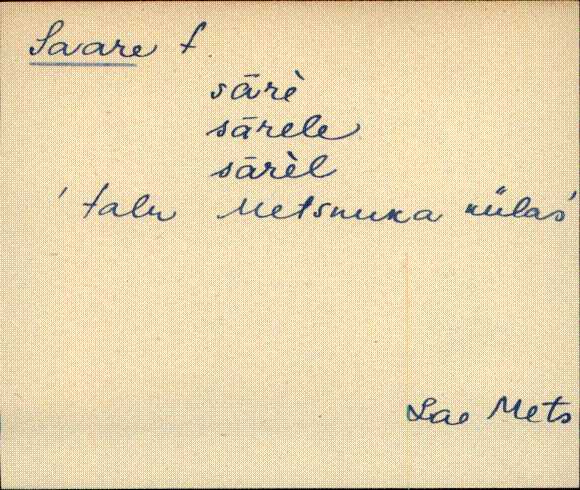 Saare t.
sārè
sārele
sārèl
'talu Metsnuka külas'
Lae Mets